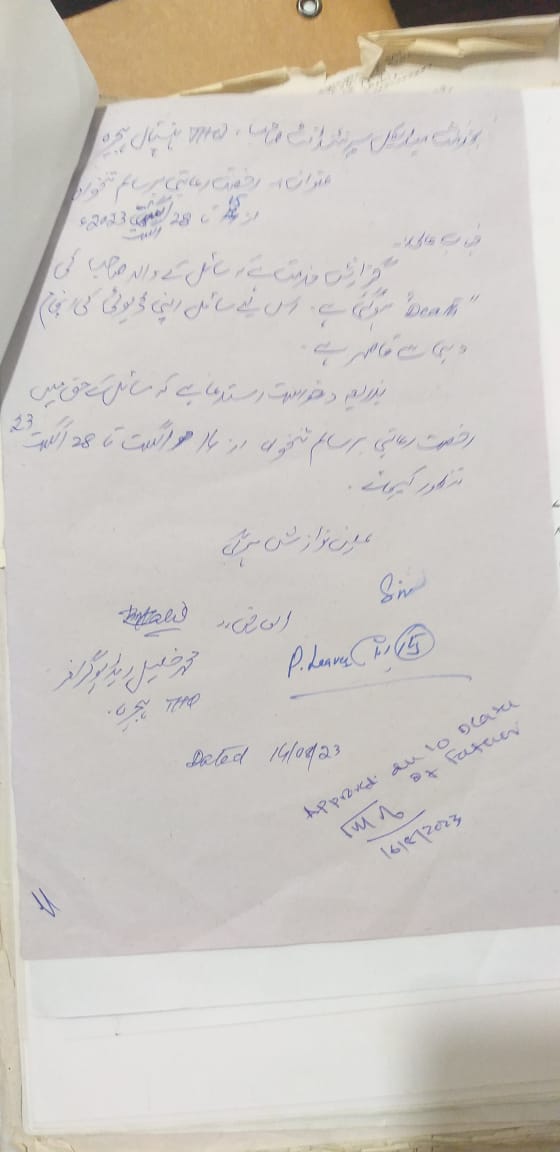 بخدمت میڈیکل سپرنٹنڈنٹ صاحب، THQ ہسپتال ہجیرہ
عنوان:- رخصت رعایتی برسالم تنخواہ
از 15 تا 28 اگست 2023ء
جناب عالی!
گزارش خدمت ہے کہ سائل کے والد صاحب کی
"Death" ہوگئی ہے۔ اس لیے سائل اپنی ڈیوٹی کی انجام
دہی سے قاصر ہے۔
بذریعہ درخواست استدعا ہے کہ سائل کے حق میں
رخصت رعایتی برسالم تنخواہ از 14 اگست تا 28 اگست 23
منظور کیجائے۔
عین نوازش ہوگی
Sir
العارض:
P. Leave 15
محمد خلیل ریڈیوگرافر
THQ ہجیرہ
Dated 14/08/23
Approved due to Death
of Father
16/8/2023